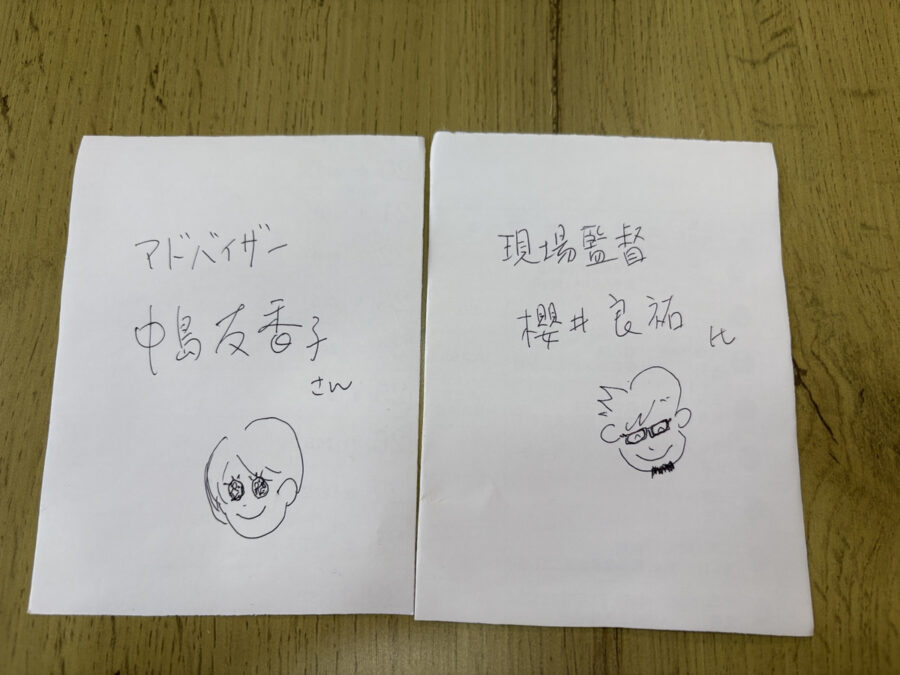 アドバイザー
中島友香子
さん
現場監督
櫻井良祐
氏